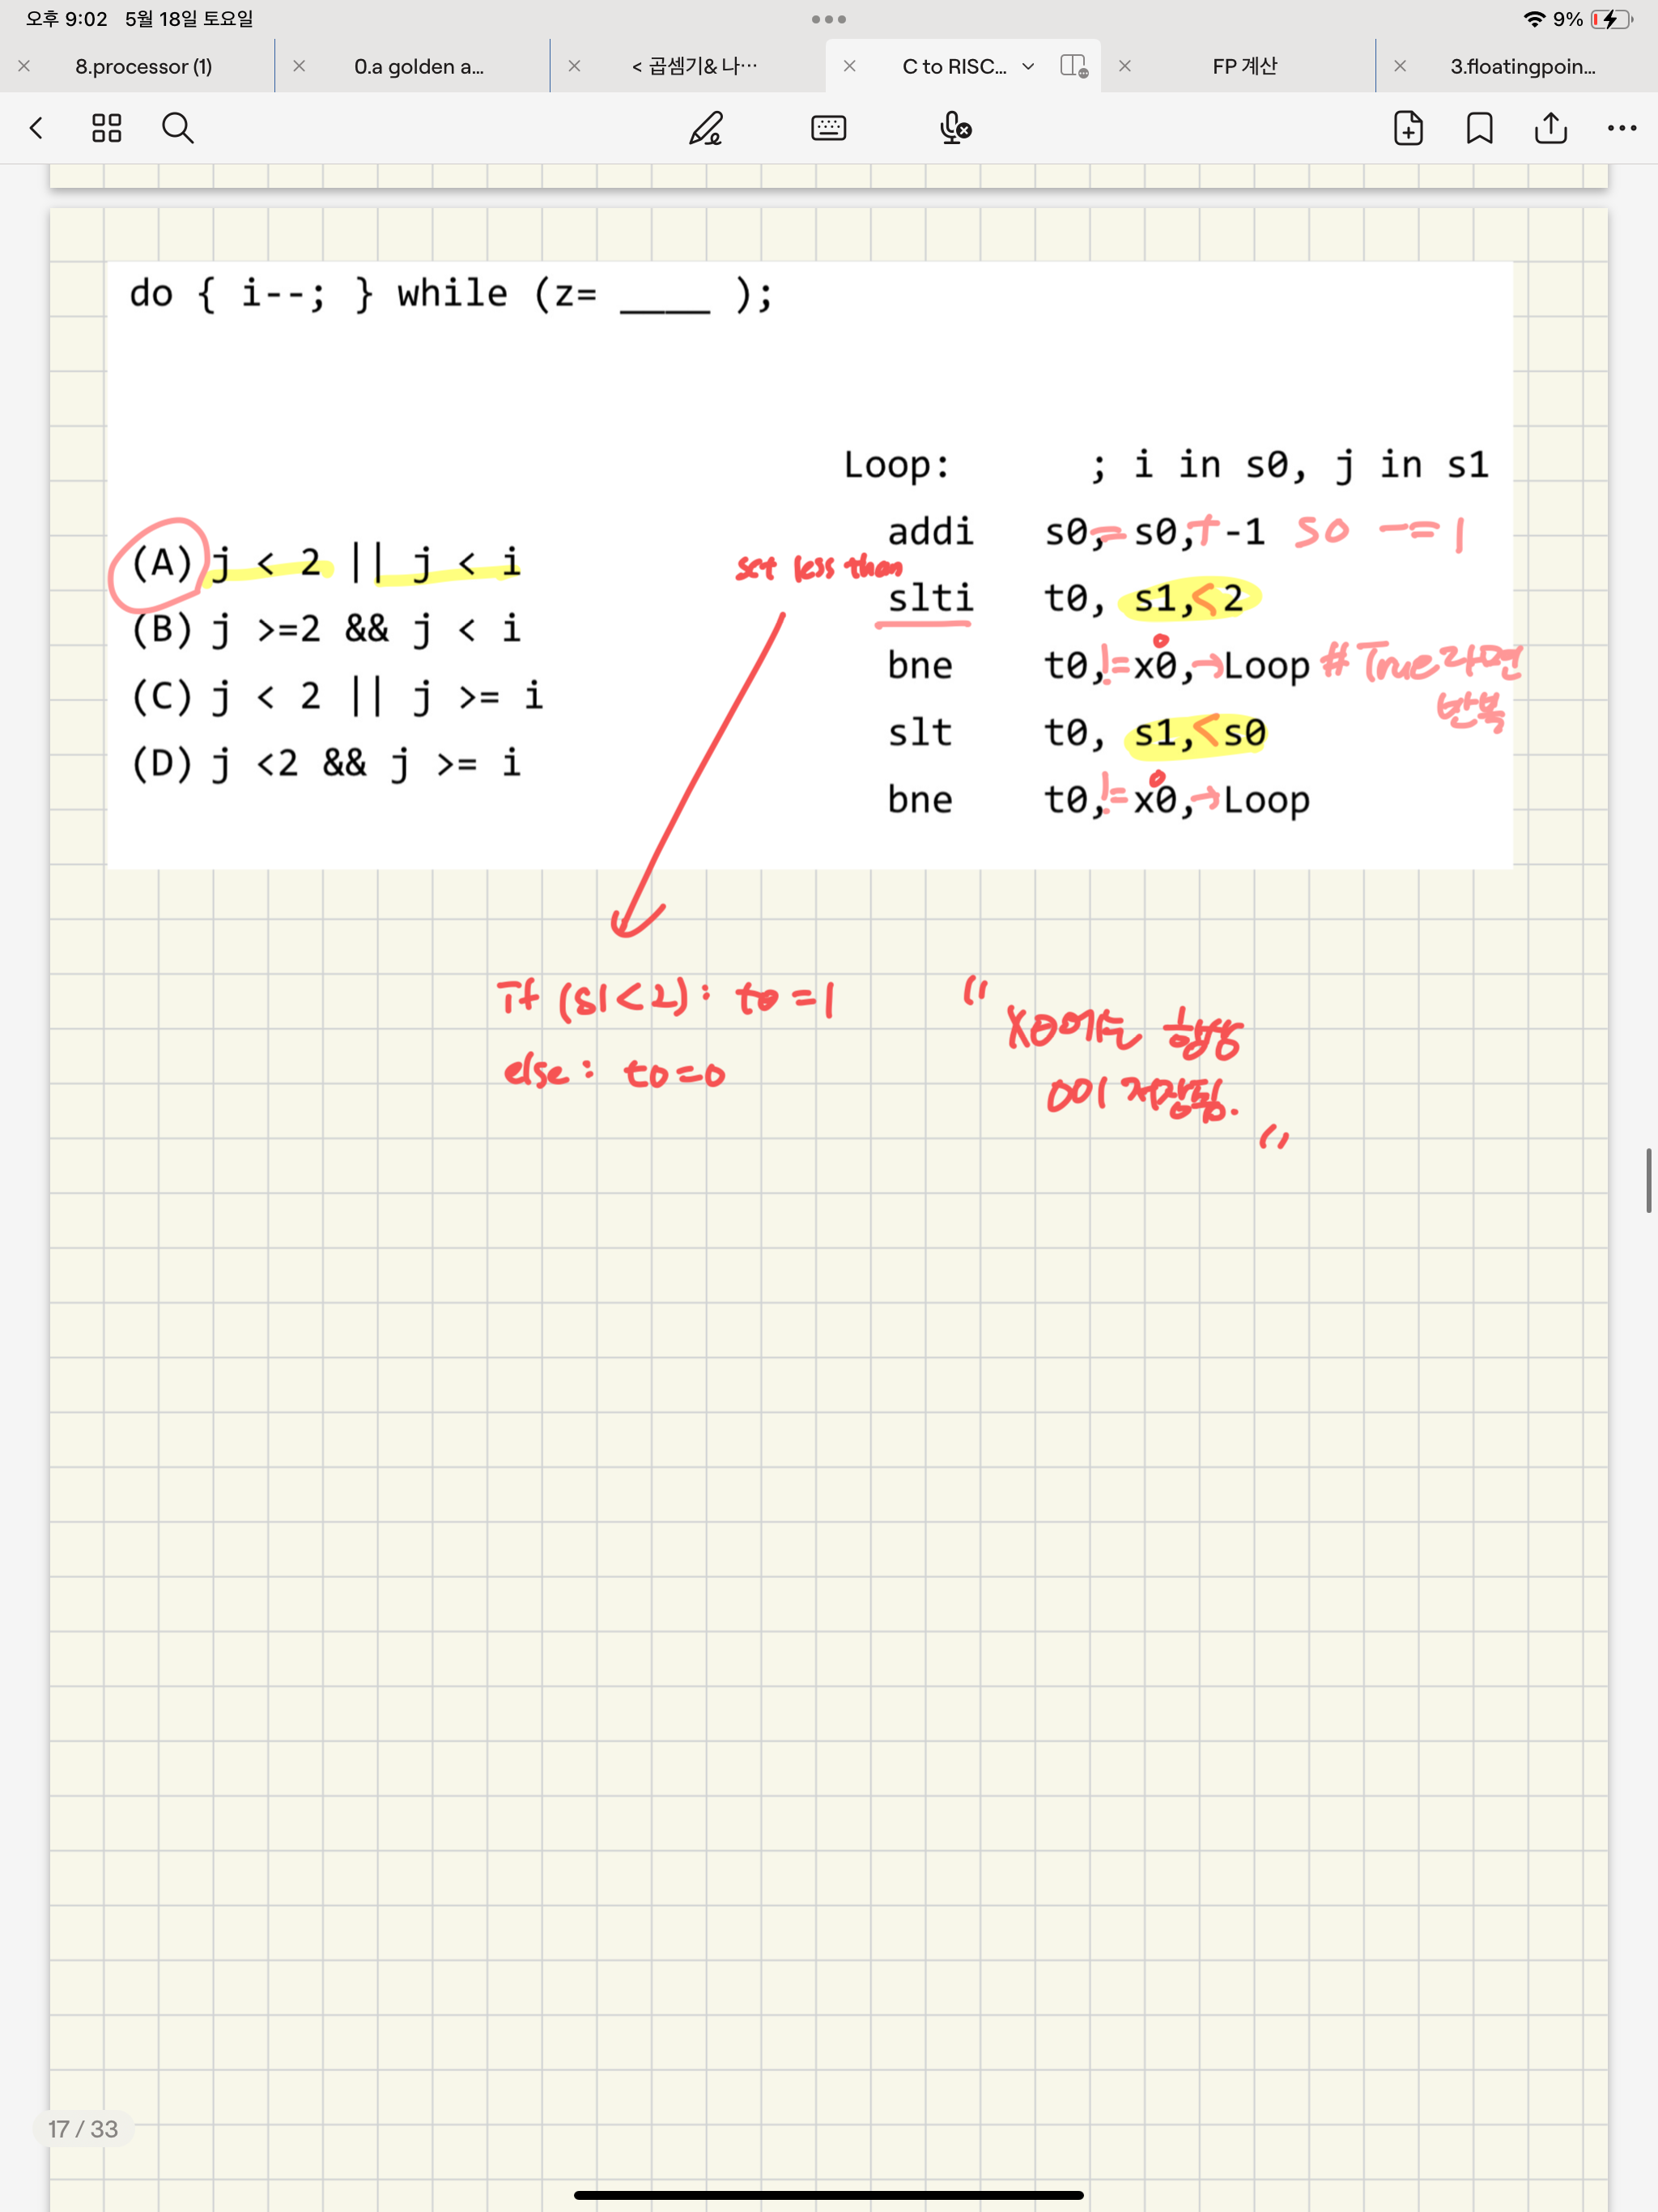 오후 9:02 5월 18일 토요일 9%
8.processor (1) 0.a golden a... < 곱셈기& 나… C to RISC... FP 계산 3.floatingpoin...
do { i--; } while (z= ____ );
Loop: ; i in s0, j in s1
addi s0,= s0,+ -1 s0 -= 1
(A) j < 2 || j < i
set less than
slti t0, s1,< 2
(B) j >=2 && j < i
0
bne t0,!= x0,→Loop # True라면
반복
(C) j < 2 || j >= i
slt t0, s1,< s0
(D) j <2 && j >= i
0
bne t0,!= x0,→Loop
if (s1<2): t0=1
else: t0=0
"
X0에는 항상
0이 저장됨.
"
17 / 33